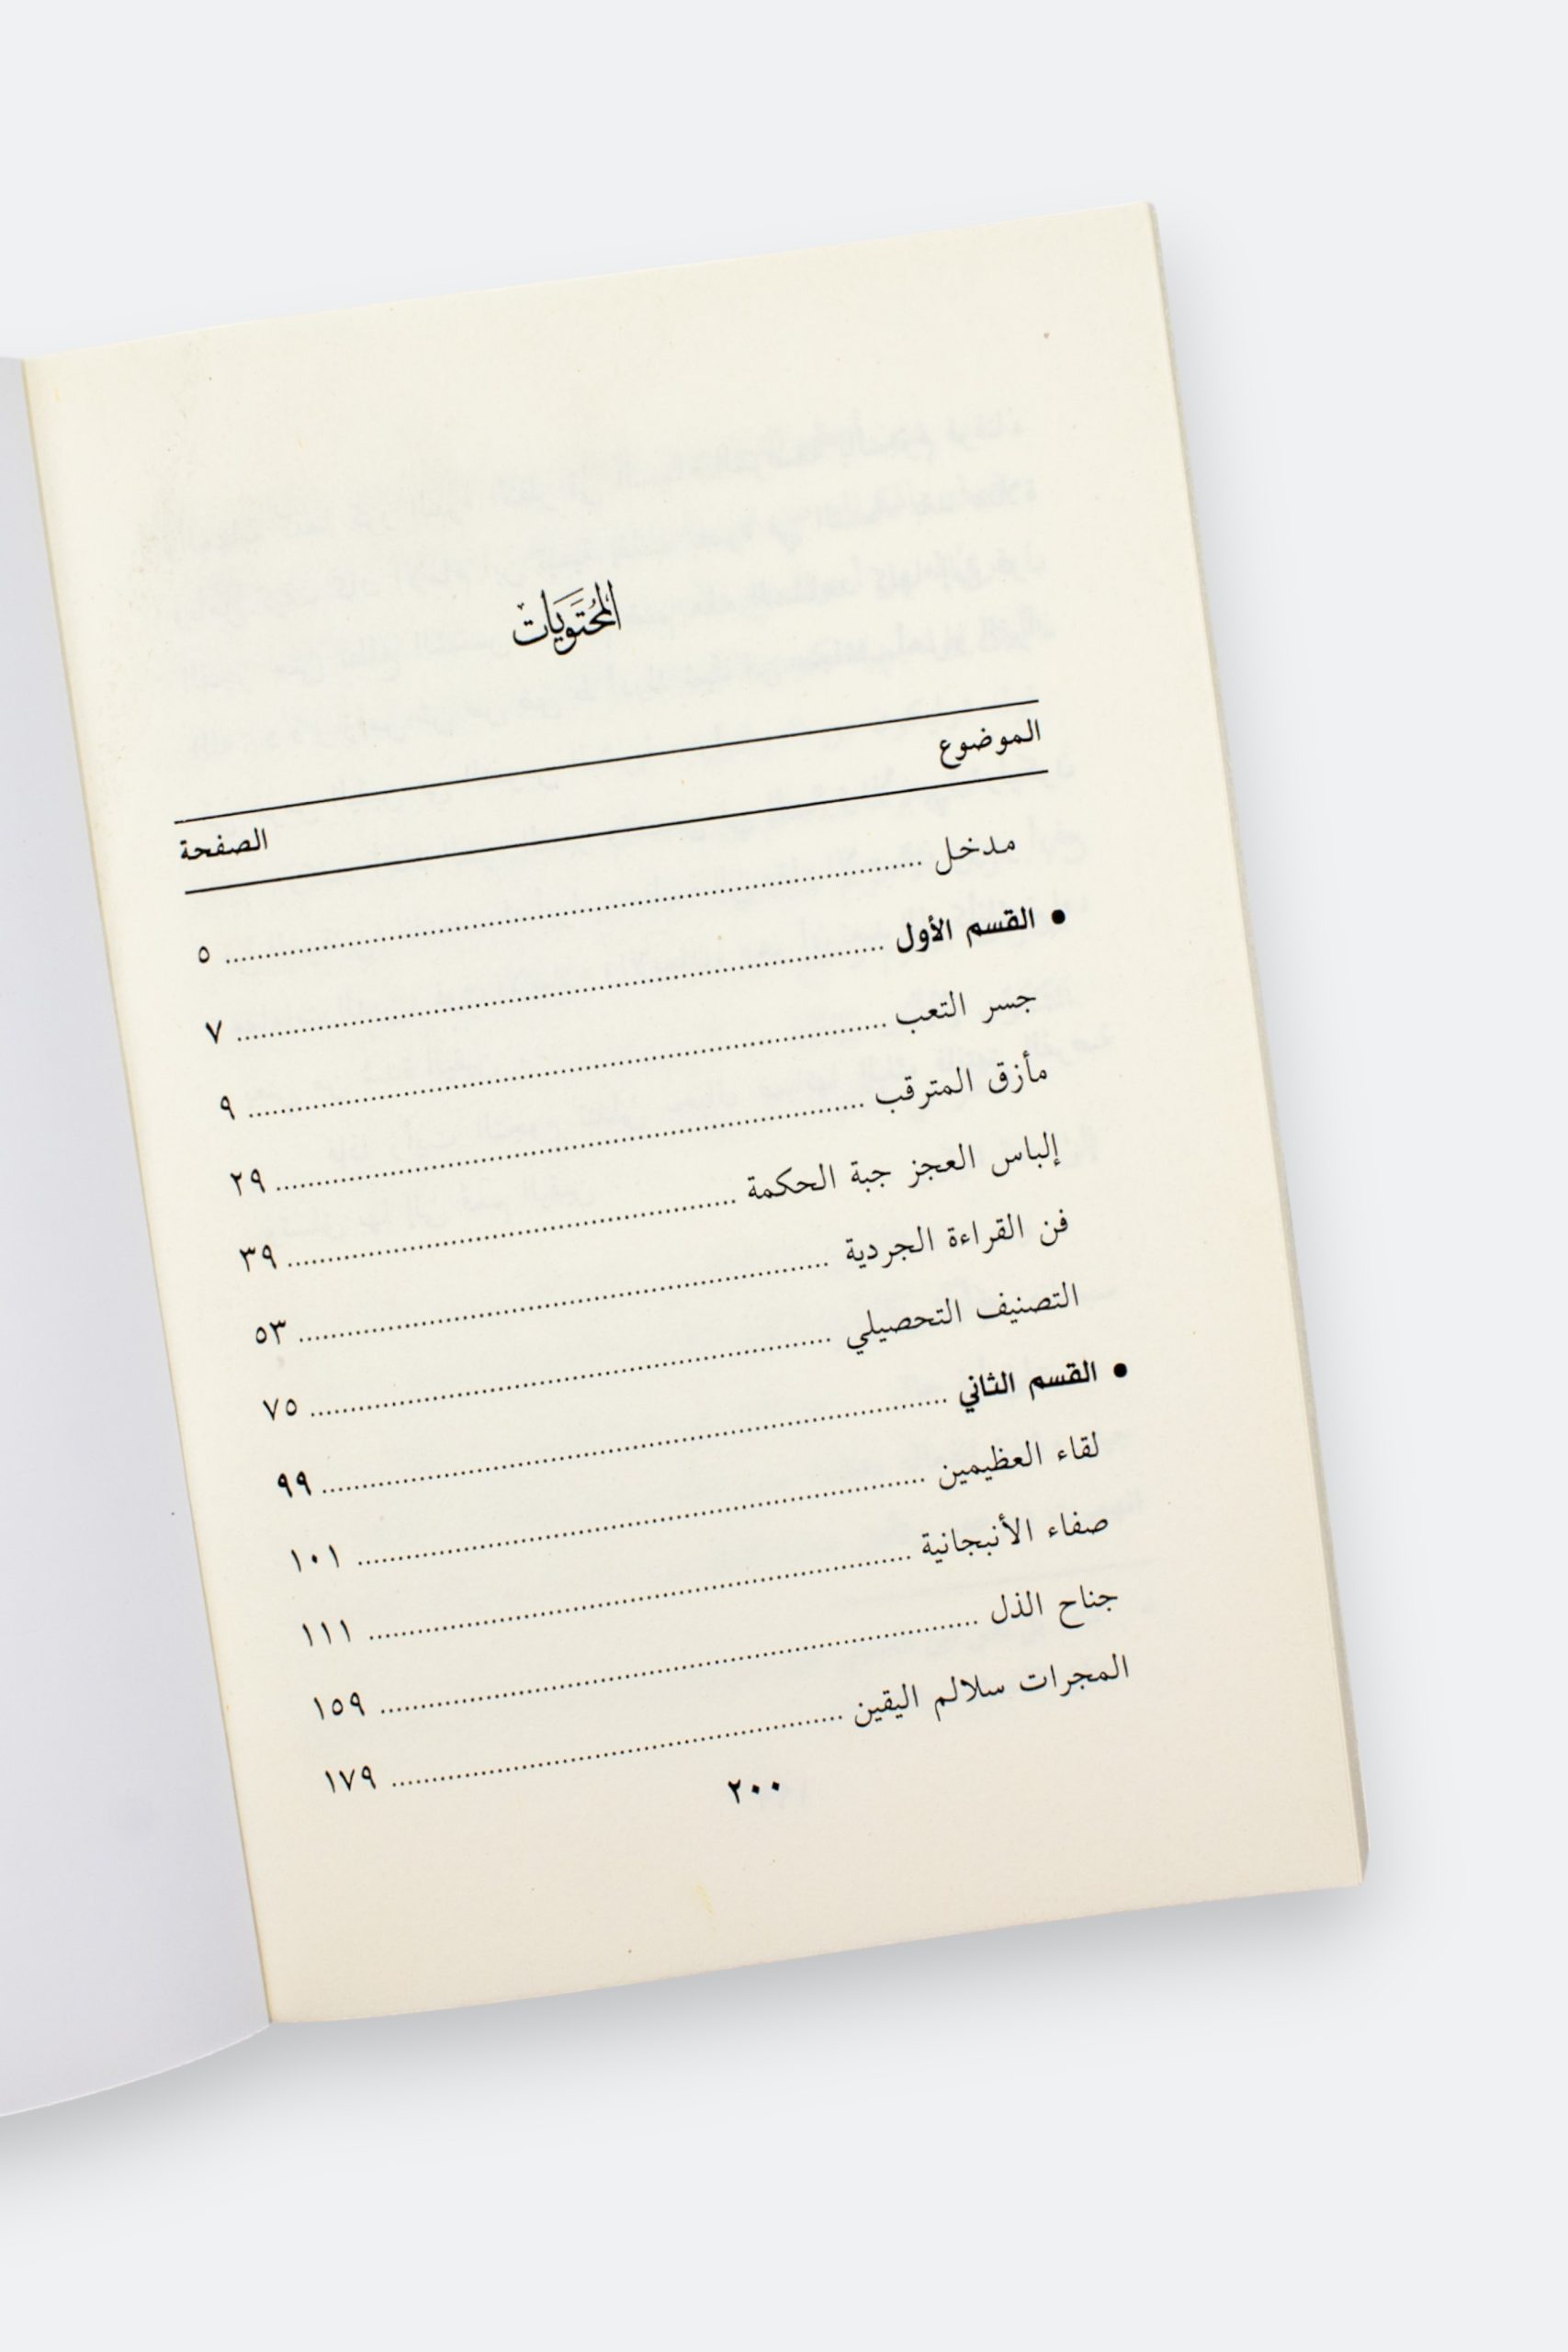 المُحْتَوَيَات
الموضوع الصفحة
مدخل ..... ٥
• القسم الأول ..... ٧
جسر التعب ..... ٩
مأزق المترقب ..... ٢٩
إلباس العجز جبة الحكمة ..... ٣٩
فن القراءة الجردية ..... ٥٣
التصنيف التحصيلي ..... ٧٥
• القسم الثاني ..... ٩٩
لقاء العظيمين ..... ١٠١
صفاء الأنبجانية ..... ١١١
جناح الذل ..... ١٥٩
المجرات سلالم اليقين ..... ١٧٩
٢٠٠